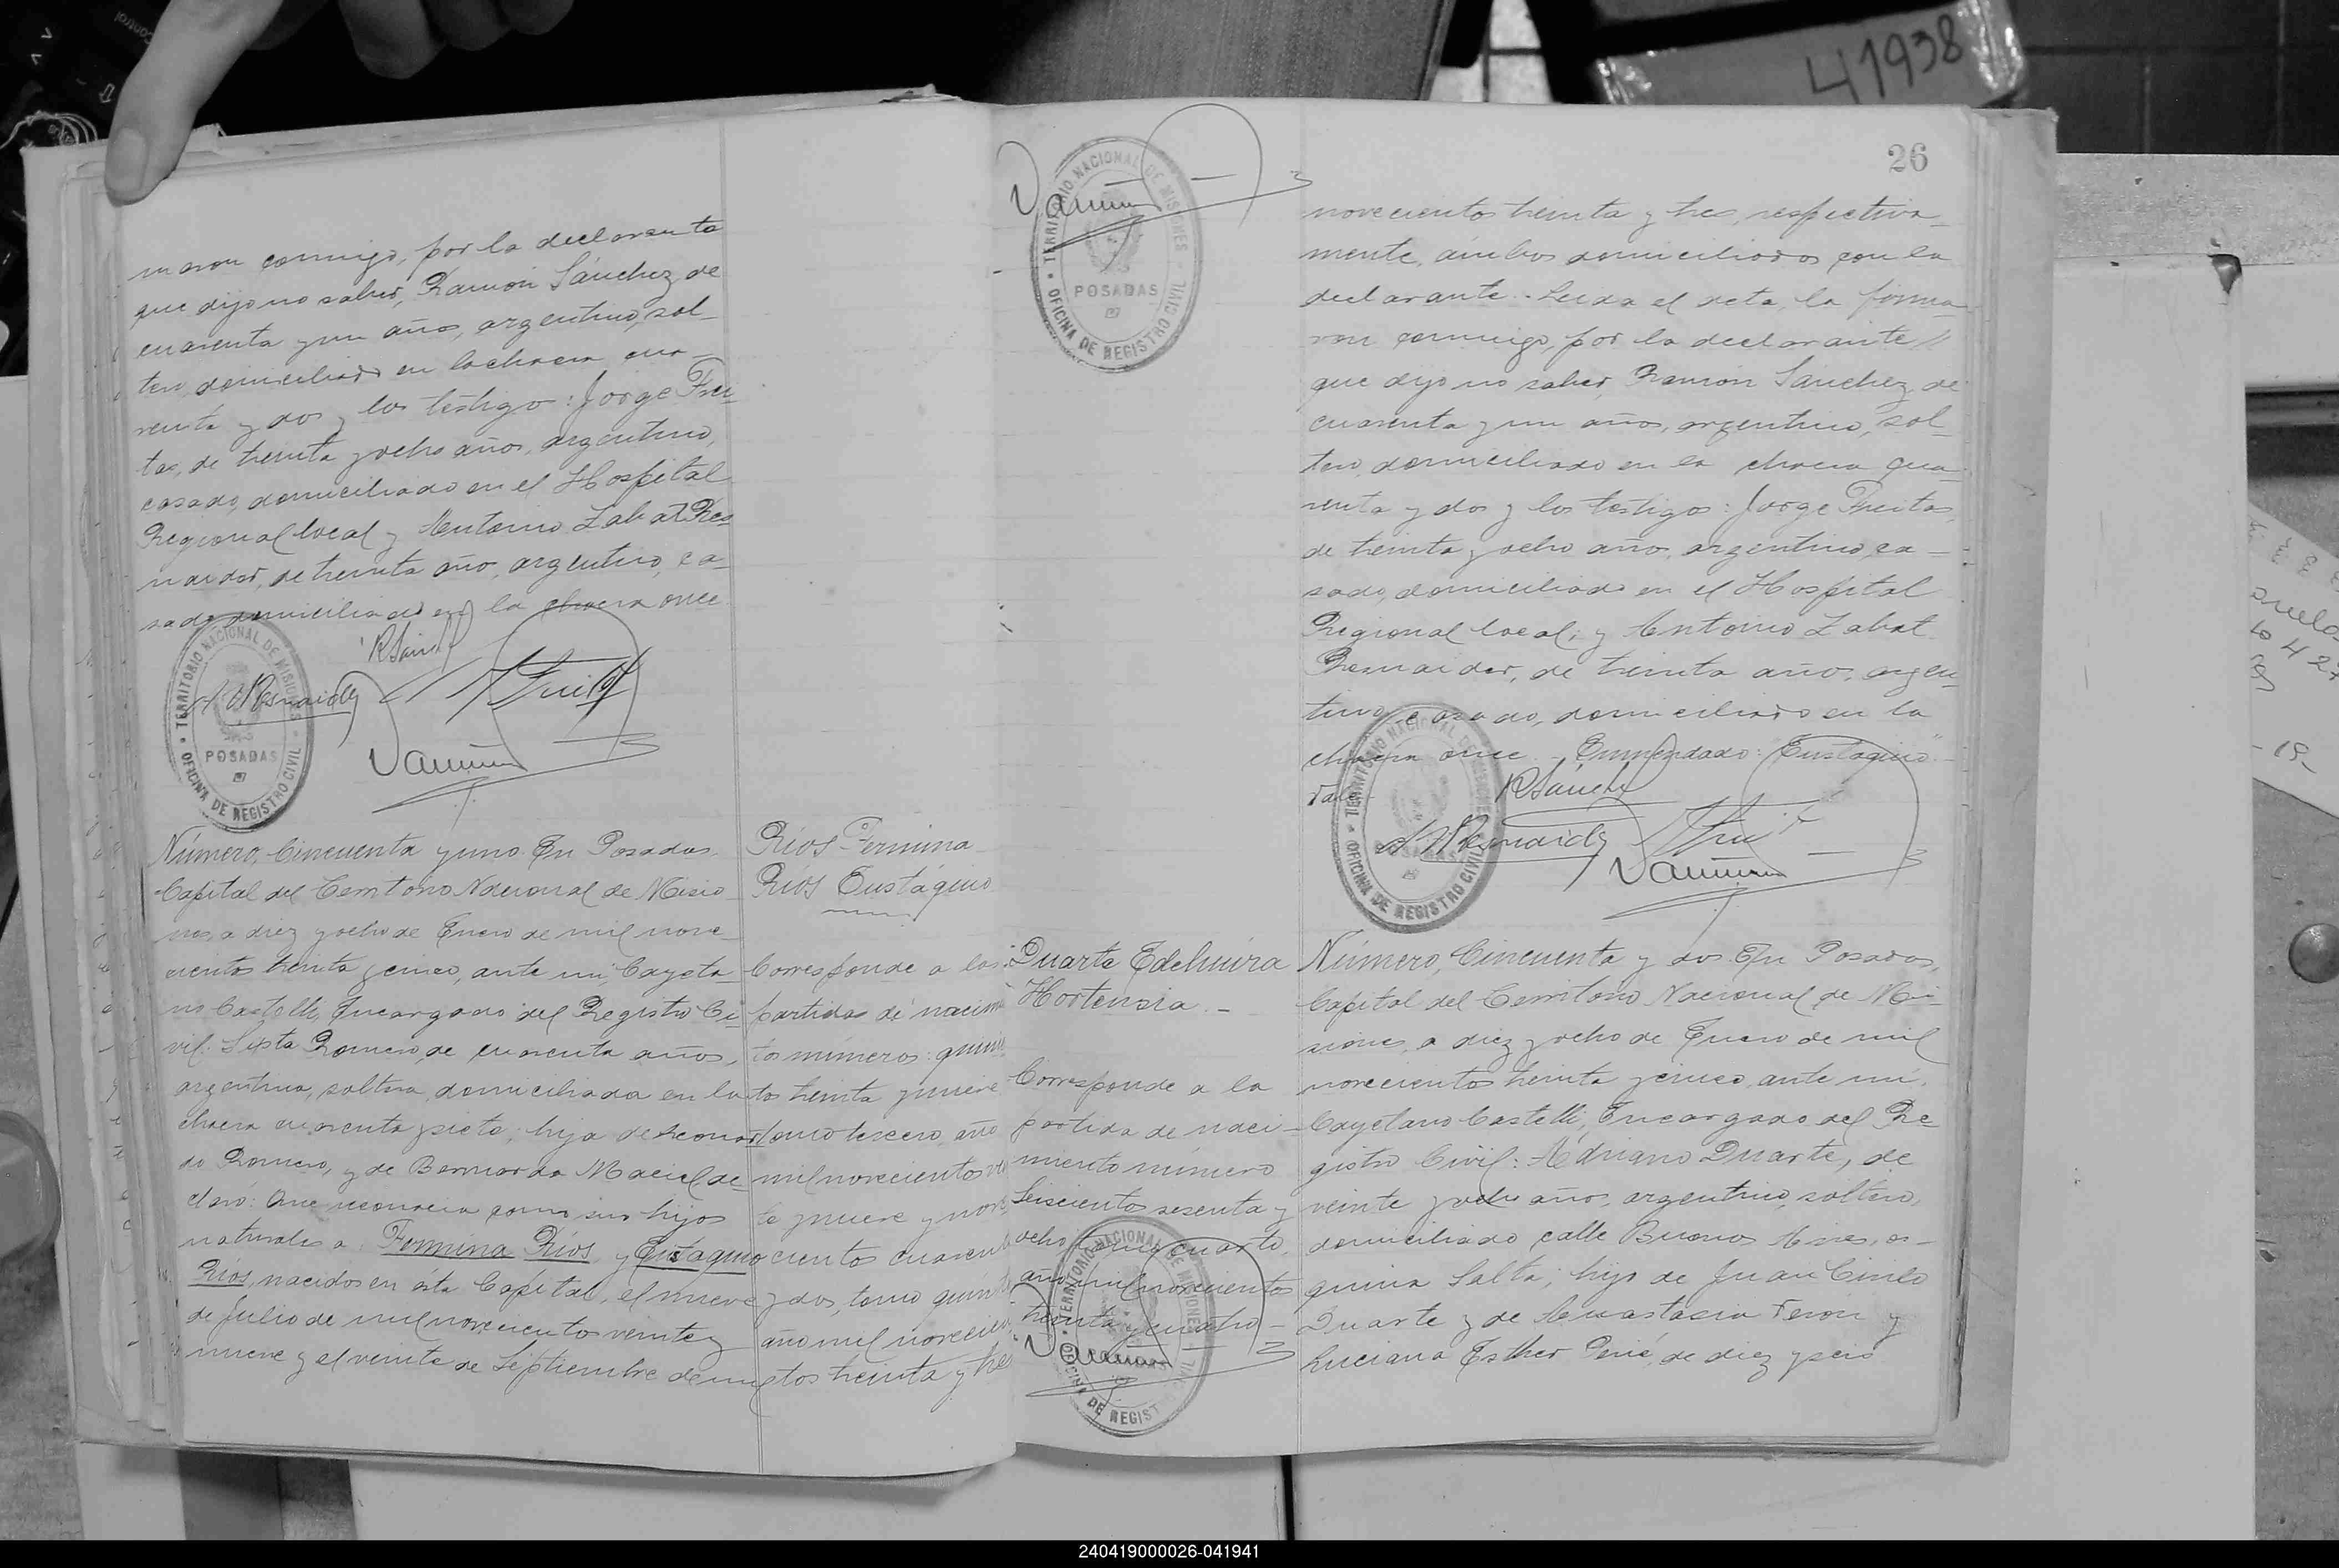 41938
maron conmigo, por la declarante
que dijo no saber, Ramón Sánchez, de
cuarenta y un año, argentino, sol-
tero, domiciliado en la chacra cua-
renta y dos y los testigos: Jorge Frei-
tas, de treinta y ocho años, argentino,
casado, domiciliado en el Hospital
Regional local y Antonio Labat Res
naider, de treinta año, argentino, ca-
sado, domiciliado en la chacra once
TERRITORIO NACIONAL DE MISIONES
POSADAS
OFICINA DE REGISTRO CIVIL
Número, Cincuenta y uno. En Posadas
Capital del Territorio Nacional de Misio
nes, a diez y ocho de Enero de mil nove-
cientos treinta y cinco, ante mi, Cayeta
no Castelli, Encargado del Registro Ci-
vil: Sixta Romero, de cuarenta años,
argentina, soltera, domiciliada en la
chacra cuarenta y siete; hija de Leonar
do Romero, y de Bernarda Maciel, de-
claró: Que reconocia como sus hijos
naturales a Fermina Ríos y Eustaquio
Ríos, nacidos en ésta Capital, el nueve
de Julio de mil novecientos veinte y
nueve y el veinte de Septiembre de mil
Ríos Fermina
Ríos Eustaquio
Corresponde a las
partidas de nacim
tos números: quini
tos treinta y nueve
tomo tercero, año
mil novecientos
te y nueve y nove
cientos cuarenta
y dos, tomo quint
año mil novecien
tos treinta y tres
TERRITORIO NACIONAL DE MISIONES
POSADAS
OFICINA DE REGISTRO CIVIL
Duarte Edelmira
Hortensia. -
Corresponde a la
partida de naci-
miento número
Seiscientos sesenta y
ocho, tomo cuarto,
año mil novecientos
treinta y cuatro -
26
novecientos treinta y tres, respectiva-
mente, ambos domiciliados con la
declarante. - Leida el acta, la firma-
ron conmigo, por la declarante //
que dijo no saber, Ramón Sánchez, de
cuarenta y un años, argentino, sol-
tero, domiciliado en la chacra cua-
renta y dos y los testigos: Jorge Freitas,
de treinta y ocho año, argentino, ca-
sado, domiciliado en el Hospital
Regional local; y Antonio Labat
Resnaider, de treinta año, argen-
tino, casado, domiciliado en la
chacra once. - Enmendado: "Eustaquio" -
Vale -
TERRITORIO NACIONAL DE MISIONES
OFICINA DE REGISTRO CIVIL
Número, Cincuenta y dos. En Posadas,
Capital del Territorio Nacional de Mi-
siones, a diez y ocho de Enero de mil
novecientos treinta y cinco, ante mi,
Cayetano Castelli, Encargado del Re
gistro Civil: Adriano Duarte, de
veinte y ocho años, argentino, soltero,
domiciliado calle Buenos Aires, es-
quina Salta; hijo de Juan Cirilo
Duarte y de Anastacia Feron y
Luciana Esther Pené, de diez y seis
240419000026-041941